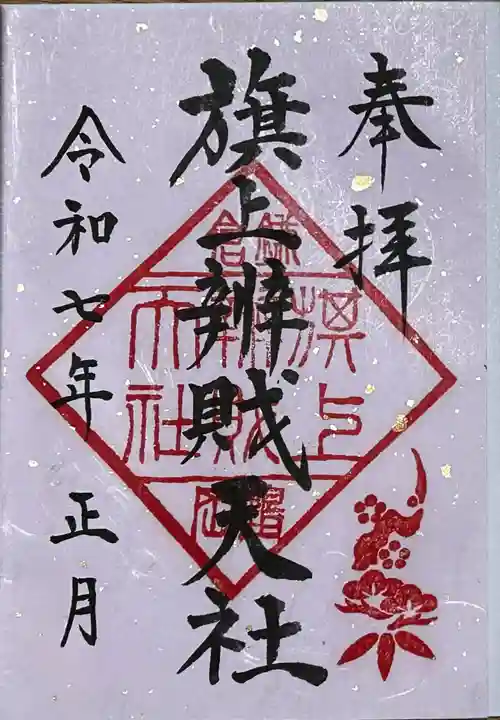 奉拝
旗上辨財天社
令和七年 正月
鎌倉
旗上
辨財
天社